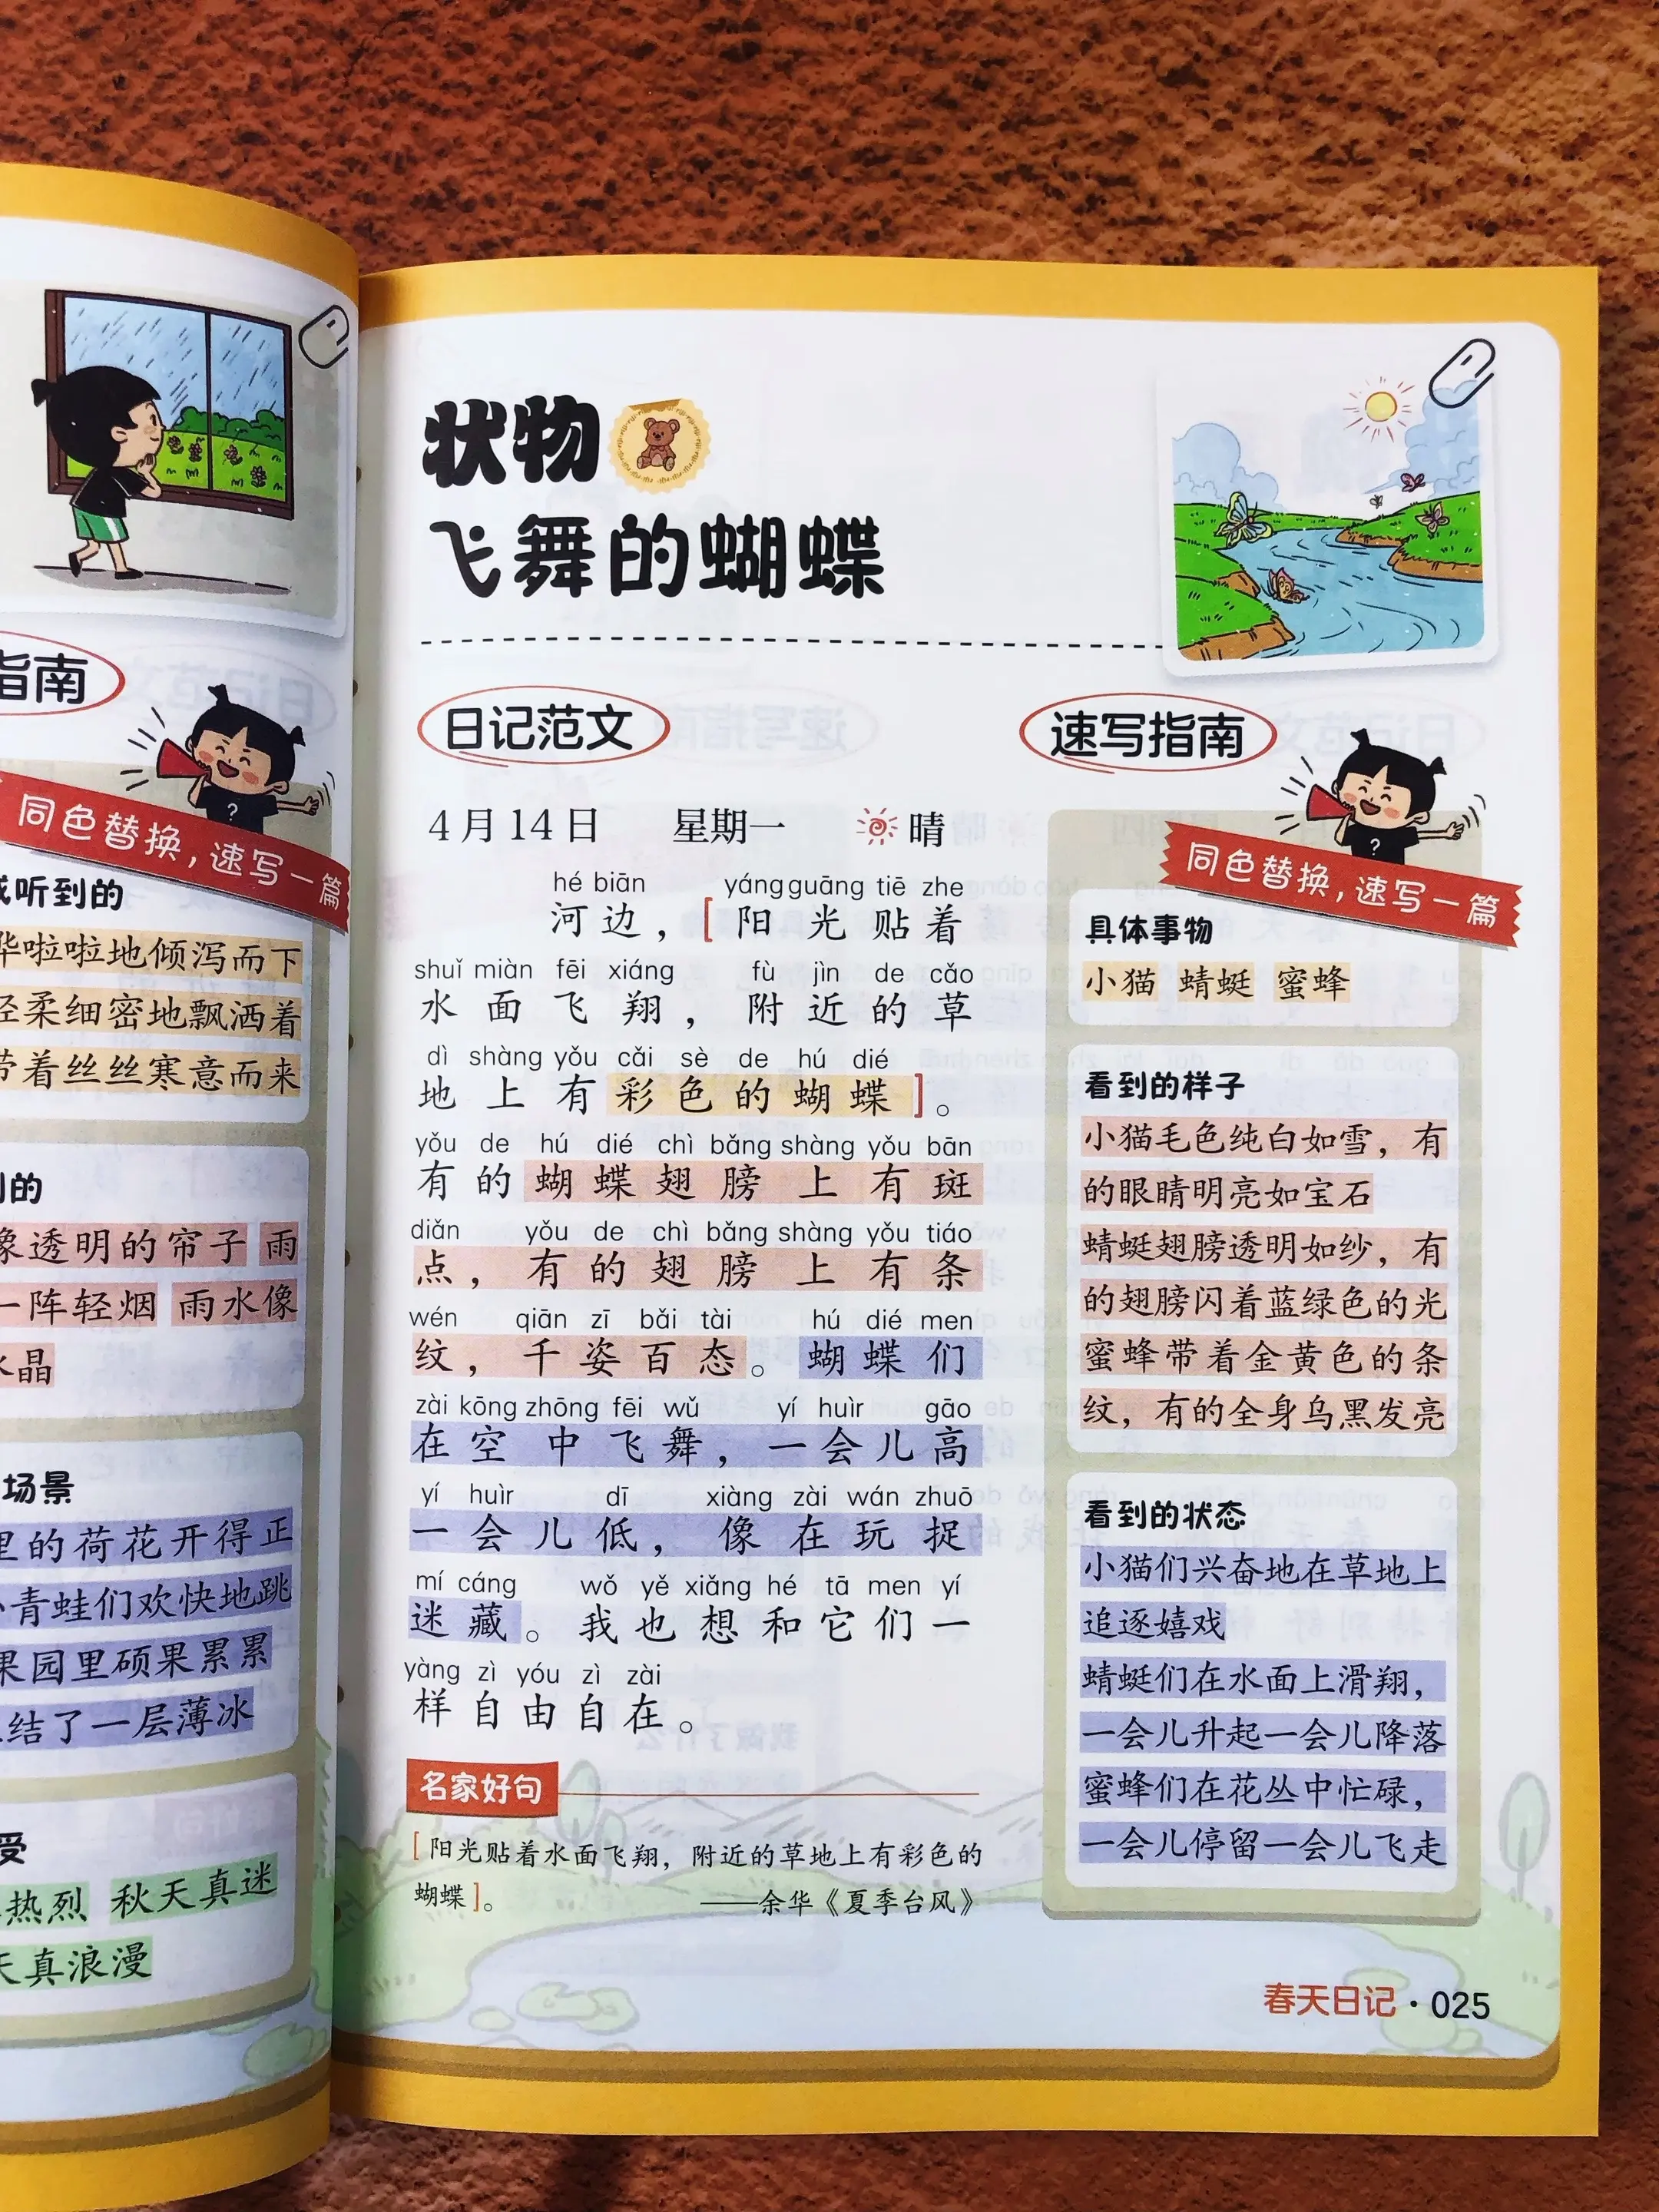 指南
同色替换，速写一篇
听到的
啦啦地倾泻而下
轻柔细密地飘洒着
带着丝丝寒意而来
到的
像透明的帘子 雨
一阵轻烟 雨水像
水晶
场景
里的荷花开得正
小青蛙们欢快地跳
果园里硕果累累
结了一层薄冰
受
热烈 秋天真迷
天真浪漫
状物
飞舞的蝴蝶
日记范文
4月14日 星期一 晴
hé biān yáng guāng tiē zhe
河边，[阳光贴着
shuǐ miàn fēi xiáng fù jìn de cǎo
水面飞翔，附近的草
dì shàng yǒu cǎi sè de hú dié
地上有彩色的蝴蝶]。
yǒu de hú dié chì bǎng shàng yǒu bān
有的蝴蝶翅膀上有斑
diǎn yǒu de chì bǎng shàng yǒu tiáo
点，有的翅膀上有条
wén qiān zī bǎi tài hú dié men
纹，千姿百态。蝴蝶们
zài kōng zhōng fēi wǔ yí huìr gāo
在空中飞舞，一会儿高
yí huìr dī xiàng zài wán zhuō
一会儿低，像在玩捉
mí cáng wǒ yě xiǎng hé tā men yí
迷藏。我也想和它们一
yàng zì yóu zì zài
样自由自在。
名家好句
[阳光贴着水面飞翔，附近的草地上有彩色的
蝴蝶]。 ——余华《夏季台风》
速写指南
?
同色替换，速写一篇
具体事物
小猫 蜻蜓 蜜蜂
看到的样子
小猫毛色纯白如雪，有
的眼睛明亮如宝石
蜻蜓翅膀透明如纱，有
的翅膀闪着蓝绿色的光
蜜蜂带着金黄色的条
纹，有的全身乌黑发亮
看到的状态
小猫们兴奋地在草地上
追逐嬉戏
蜻蜓们在水面上滑翔，
一会儿升起一会儿降落
蜜蜂们在花丛中忙碌，
一会儿停留一会儿飞走
春天日记·025